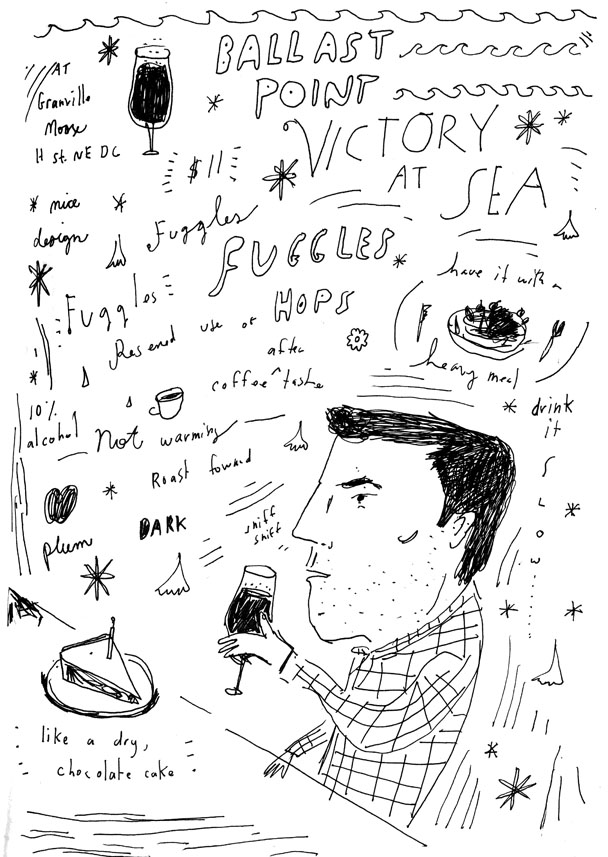 BALLAST
POINT
VICTORY
AT SEA
AT
Granville
Moose
H St. NE DC
$11
* nice
design
Fuggles
FUGGLES
HOPS
Fuggles
Reserved use of
after
coffee ^ taste
have it with a
heavy meal
10%
alcohol
Not warming
Roast forward
drink
it
S
L
O
W....
plum
DARK
sniff
sniff
like a dry,
chocolate cake